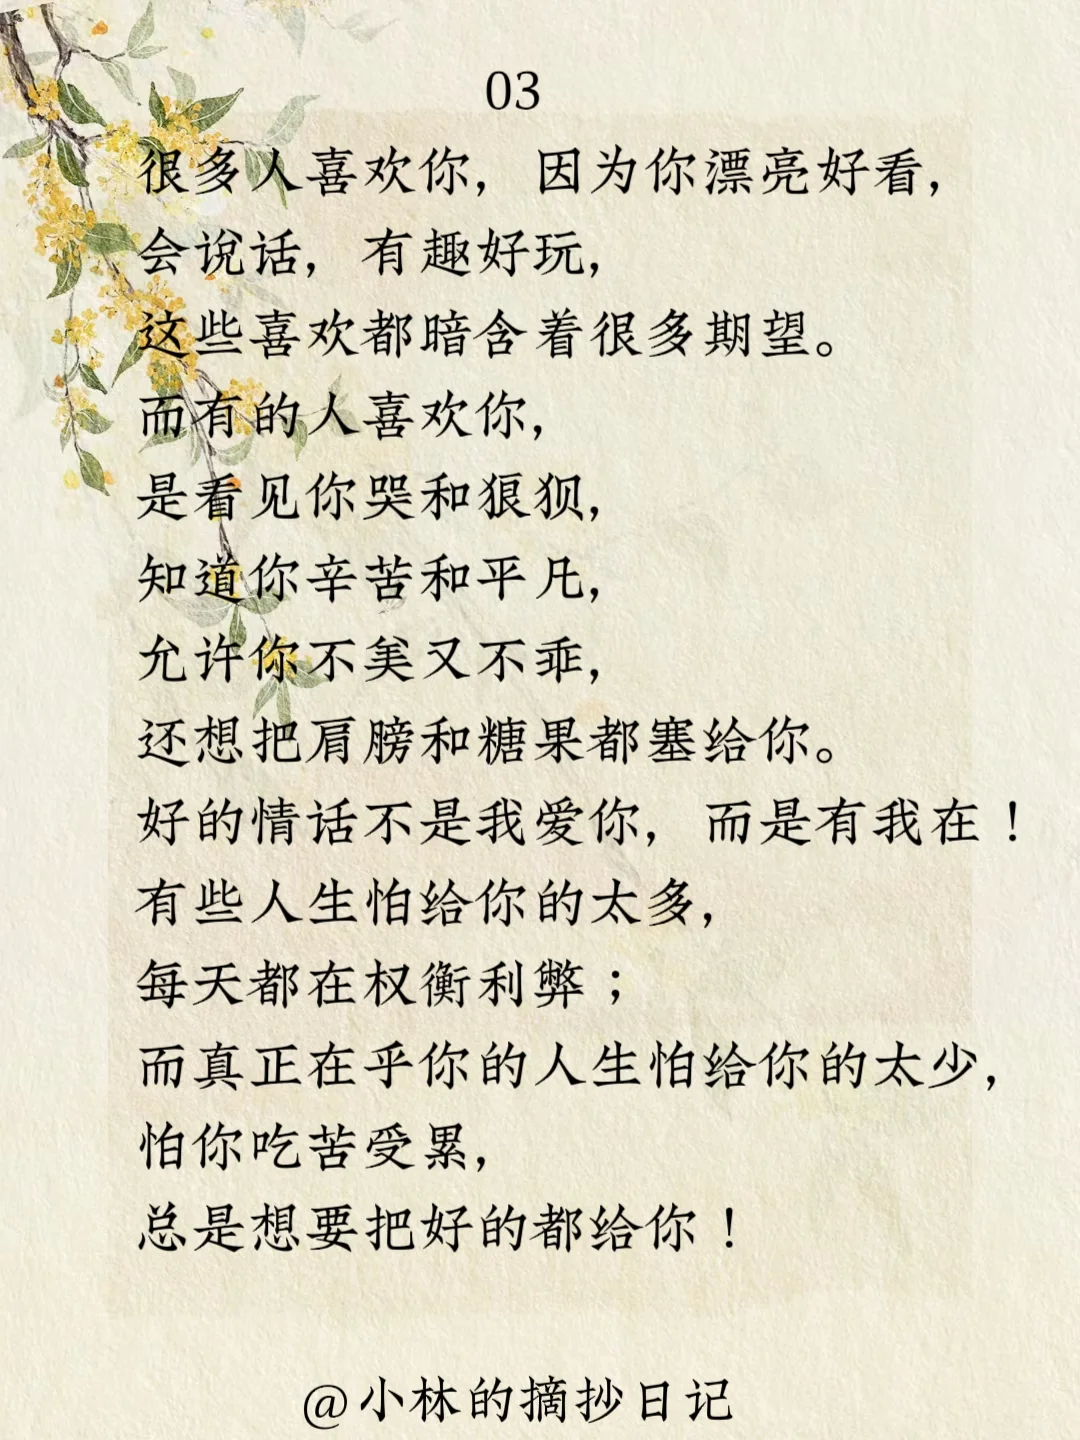 03
很多人喜欢你，因为你漂亮好看，
会说话，有趣好玩，
这些喜欢都暗含着很多期望。
而有的人喜欢你，
是看见你哭和狼狈，
知道你辛苦和平凡，
允许你不美又不乖，
还想把肩膀和糖果都塞给你。
好的情话不是我爱你，而是有我在！
有些人生怕给你的太多，
每天都在权衡利弊；
而真正在乎你的人生怕给你的太少，
怕你吃苦受累，
总是想要把好的都给你！
@小林的摘抄日记